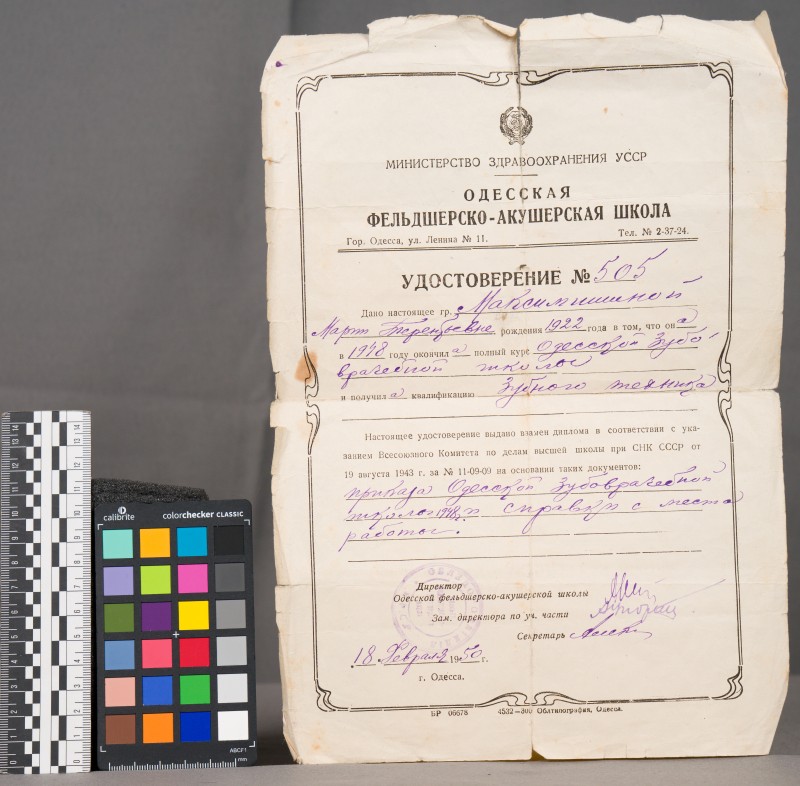 МИНИСТЕРСТВО ЗДРАВООХРАНЕНИЯ УССР
ОДЕССКАЯ
ФЕЛЬДШЕРСКО-АКУШЕРСКАЯ ШКОЛА
Гор. Одесса, ул. Ленина № 11. Тел. № 2-37-24.
УДОСТОВЕРЕНИЕ № 505
Дано настоящее гр. Максимишиной
Марте Терентьевне рождения 1922 года в том, что он а
в 1948 году окончил а полный курс Одесской Зубо-
врачебной школы
и получил а квалификацию Зубного техника
Настоящее удостоверение выдано взамен диплома в соответствии с ука-
занием Всесоюзного Комитета по делам высшей школы при СНК СССР от
19 августа 1943 г. за № 11-09-09 на основании таких документов:
приказа Одесской Зубоврачебной
школы 1948 г. и справки с места
работы.
Директор
Одесской фельдшерско-акушерской школы
Зам. директора по уч. части
Секретарь
18 Февраля 1950 г.
г. Одесса.
БР 06678 4532—300 Облтипография, Одесса.
calibrite colorchecker CLASSIC
ABCF1
mm
0 1 2 3 4 5 6 7 8 9 10 11 12 13 14